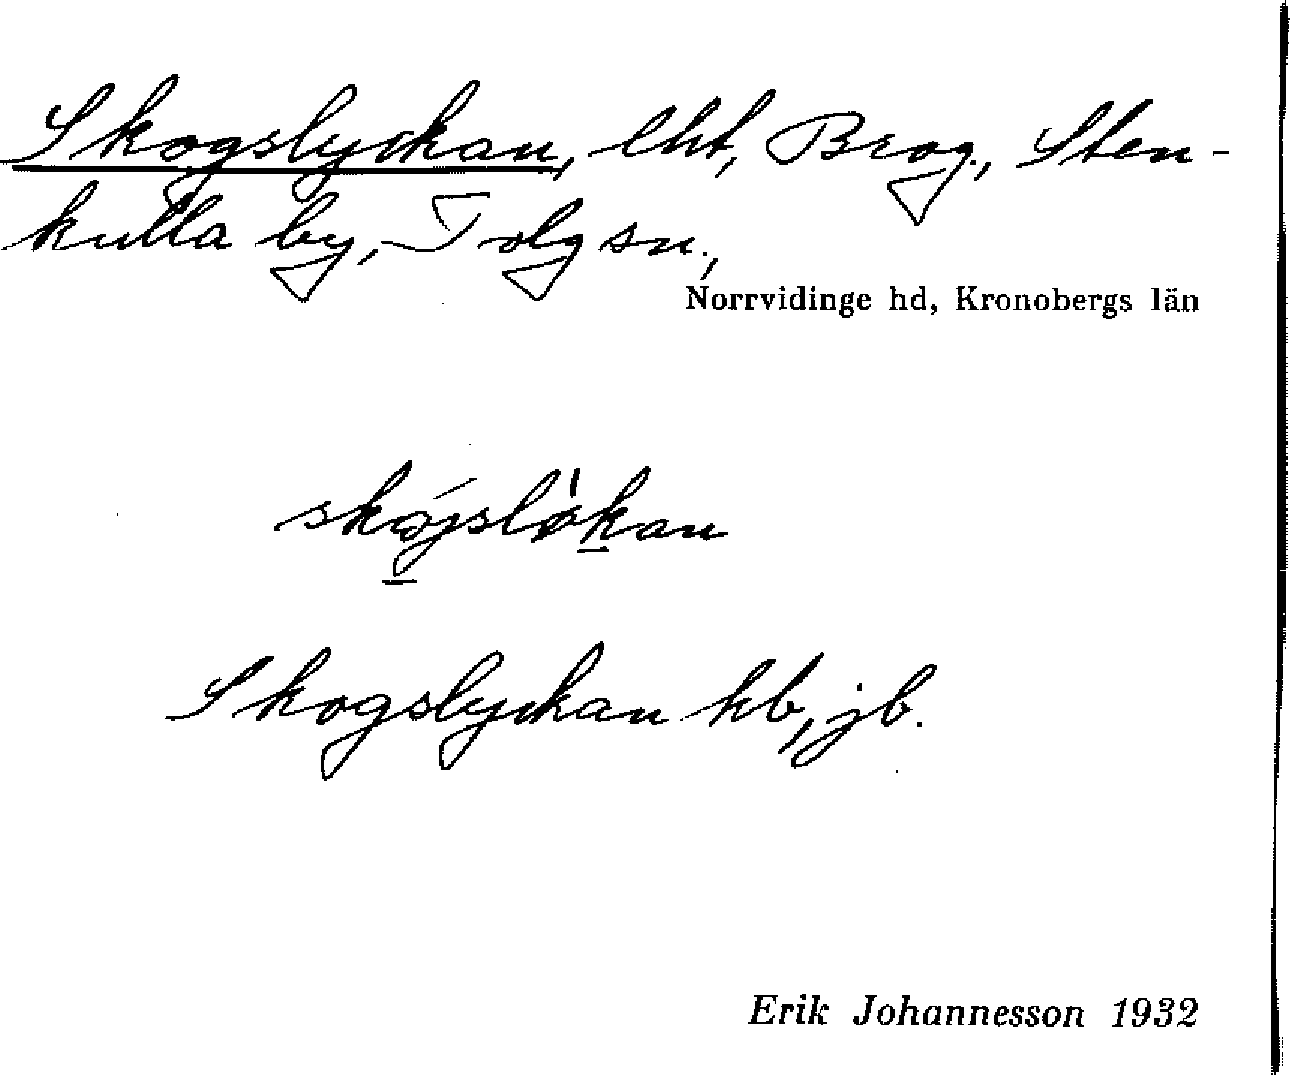 Skogslyckan, lht, Brog., Sten-
kulla by, Tolg sn.,
Norrvidinge hd, Kronobergs län
skǫ́jsløkan
Skogslyckan hb, jb.
Erik Johannesson 1932